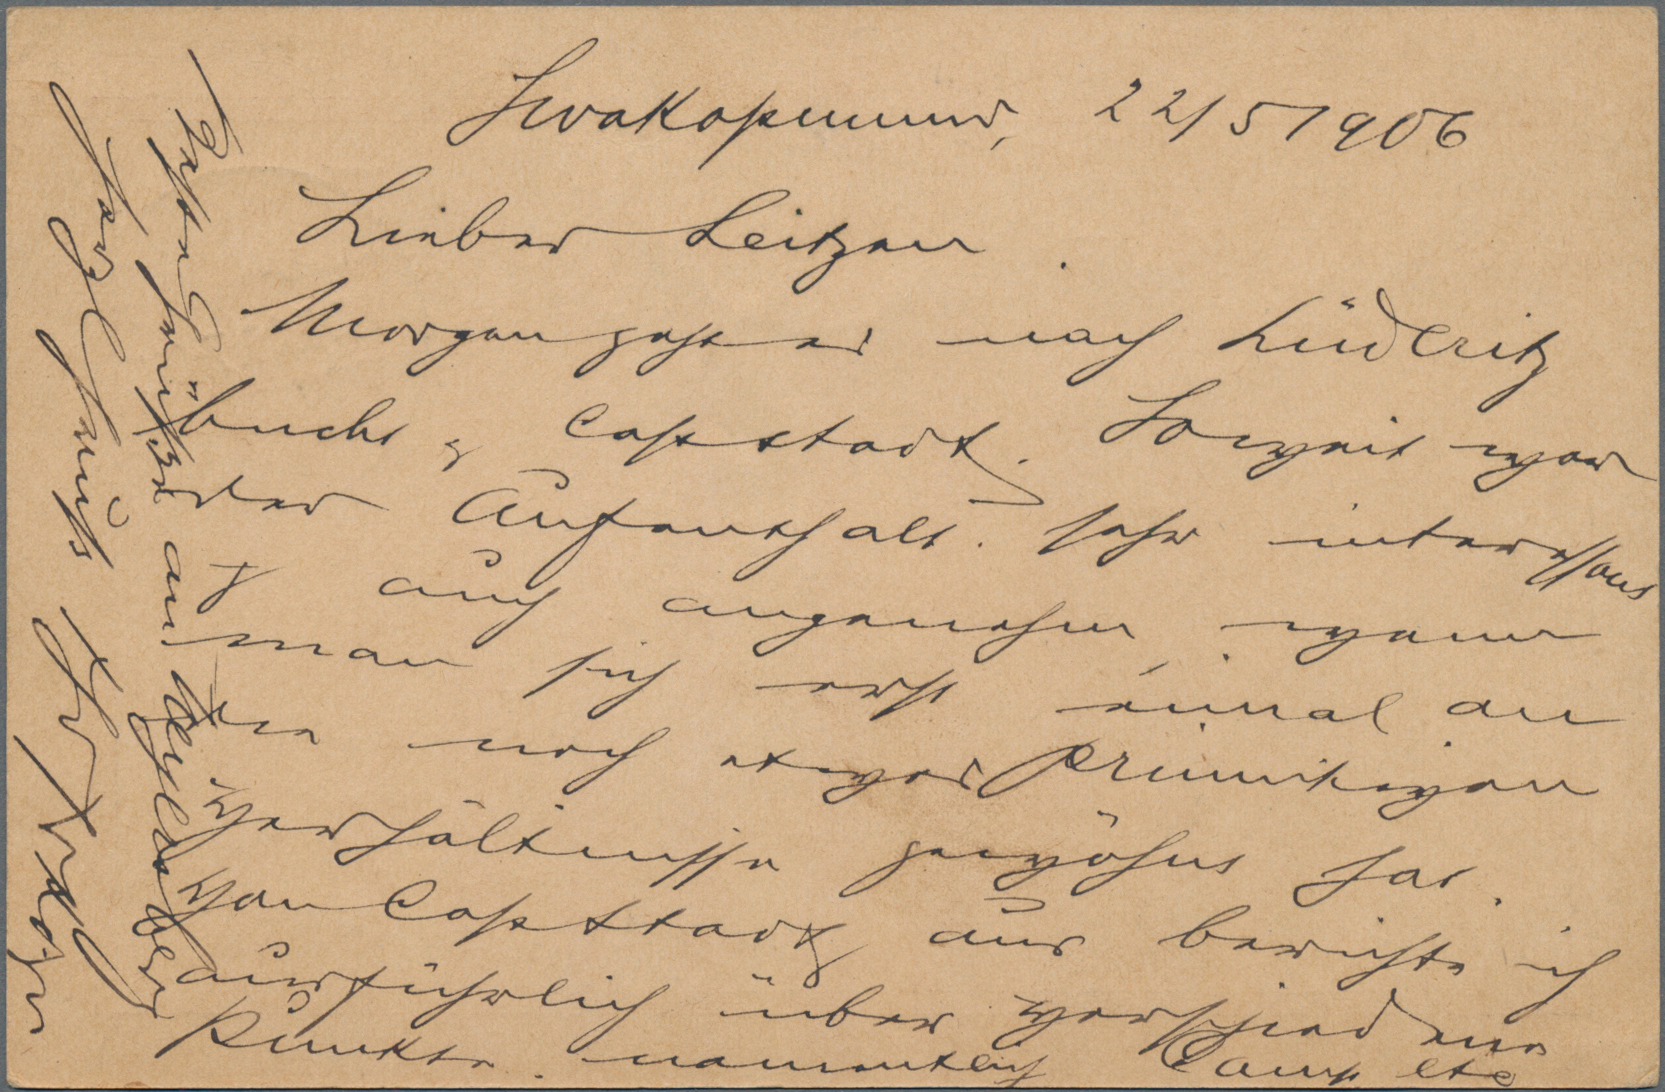 Swakopmund, 22/5 1906
Lieber Leitzen
Morgen geht es nach Lüderitz
bucht & Capstadt. Soweit war
der Aufenthalt sehr interessant
& auch angenehm, wenn
man sich erst einmal an
die noch etwas primitiven
Verhältnisse gewöhnt hat.
Von Capstadt aus berichte ich
ausführlich über verschiedene
Punkte, namentlich Camp etc
Beste Grüsse an
Herzl Gruss Ihr